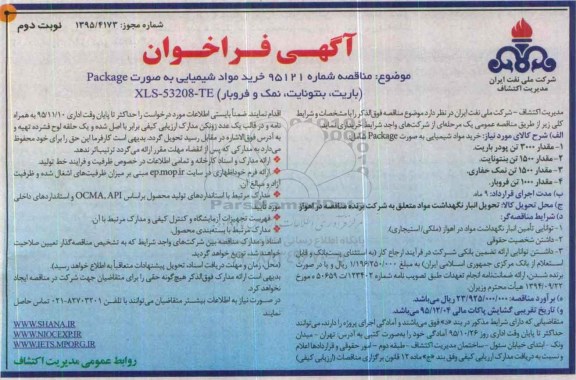 شماره مجوز: ۱۳۹۵/۴۱۷۳
نوبت دوم
آگهی فراخوان
شرکت ملی نفت ایران
مدیریت اکتشاف
موضوع: مناقصه شماره ۹۵۱۲۱ خرید مواد شیمیایی به صورت Package
(باریت، بنتونایت، نمک و فروبار) XLS-53208-TE
مدیریت اکتشاف – شرکت ملی نفت ایران در نظر دارد موضوع مناقصه فوق‌الذکر را با مشخصات و شرایط
کلی زیر از طریق مناقصه عمومی یک مرحله‌ای از شرکت‌های واجد شرایط خریداری نماید.
الف) شرح کالای مورد نیاز: خرید مواد شیمیایی به صورت Package شامل:
۱- مقدار ۳۰۰۰ تن پودر باریت
۲- مقدار ۱۵۰۰ تن بنتونایت.
۳- مقدار ۱۵۰۰ تن نمک حفاری.
۴- مقدار ۱۰۰۰ تن فروبار.
ب) مدت اجرای قرارداد: ۹ ماه
ج) محل تحویل کالا: تحویل انبار نگهداشت مواد متعلق به شرکت برنده مناقصه در اهواز
د) شرایط مناقصه‌گر:
۱- توانایی تأمین انبار نگهداشت مواد در اهواز (ملکی / استیجاری).
۲- داشتن شخصیت حقوقی
۳- داشتن توانایی ارائه تضمین بانکی شرکت در فرآیند ارجاع کار (به استثنای پست‌بانک و قابل
استعلام از بانک مرکزی جمهوری اسلامی ایران) به مبلغ ۱/۱۹۶/۲۵۰/۰۰۰ ریال و یا در صورت
برنده شدن، ارائه ضمانتنامه انجام تعهدات طبق تصویب نامه شماره ۱۲۳۴۰۲/ت۵۰۶۵۹ه مورخ
۱۳۹۴/۰۹/۲۲ هیأت محترم وزیران.
ه) برآورد مناقصه: ۲۳/۹۲۵/۰۰۰/۰۰۰ ریال می‌باشد.
و) تاریخ تقریبی گشایش پاکات مالی ۹۵/۱۲/۰۴ می‌باشد.
متقاضیانی که دارای شرایط مذکور در بند «د» فوق می‌باشند و آمادگی اجرای پروژه را دارند، می‌توانند
حداکثر تا پایان وقت اداری روز ۹۵/۱۰/۲۶ آمادگی خود را بصورت کتبی به آدرس تهران - میدان
ونک - ابتدای خیابان سئول - ساختمان مدیریت اکتشاف - طبقه دوم - امور حقوقی و قراردادها اعلام
و نسبت به دریافت مدارک ارزیابی کیفی وفق بند «ج» ماده ۱۲ قانون برگزاری مناقصات (ارزیابی کیفی)
اقدام نمایند. ضمناً بایستی اطلاعات مورد درخواست را حداکثر تا پایان وقت اداری ۹۵/۱۱/۱۰ به همراه
نامه و در قالب یک عدد زونکن مدارک ارزیابی کیفی برابر با اصل شده و یک حلقه لوح فشرده تهیه و
به آدرس فوق‌الاشاره در مقابل رسید تحویل گردد. بدیهی است کارفرما این حق را برای خود محفوظ
می‌دارد به مدارکی که پس از انقضاء مهلت مقرر ارائه می‌گردد ترتیب‌اثر ندهد.
ارائه مدارک و اسناد کارخانه و تمامی اطلاعات در خصوص ظرفیت و فرایند خط تولید.
ارائه فرم خوداظهاری در سایت ep.mop.ir مبنی بر میزان ظرفیت‌های اشغال شده و ظرفیت
آزاد و مبالغ آن
مدارک مرتبط با استانداردهای تولید محصول براساس OCMA, API و استانداردهای داخلی
فهرست تجهیزات آزمایشگاه و کنترل کیفی و مدارک مرتبط با آن.
مدارک مرتبط با بسته‌بندی محصول.
اسناد و مدارک مناقصه بین شرکت‌های واجد شرایط که به تشخیص مناقصه‌گذار تعیین صلاحیت
خواهند شد، توزیع خواهد گردید.
(محل، زمان و مهلت دریافت اسناد، تحویل پیشنهادات متعاقباً به اطلاع خواهد رسید).
بدیهی است ارائه مدارک فوق‌الذکر هیچ‌گونه حقی را برای متقاضیان جهت شرکت در مناقصه ایجاد
نخواهد کرد.
در صورت نیاز به اطلاعات بیشتر متقاضیان می‌توانند با تلفن ۸۲۷۰۳۲۰۱-۰۲۱ تماس حاصل
نمایند.
WWW.SHANA.IR
WWW.NIOCEXP.IR
WWW.IETS.MPORG.IR
روابط عمومی مدیریت اکتشاف